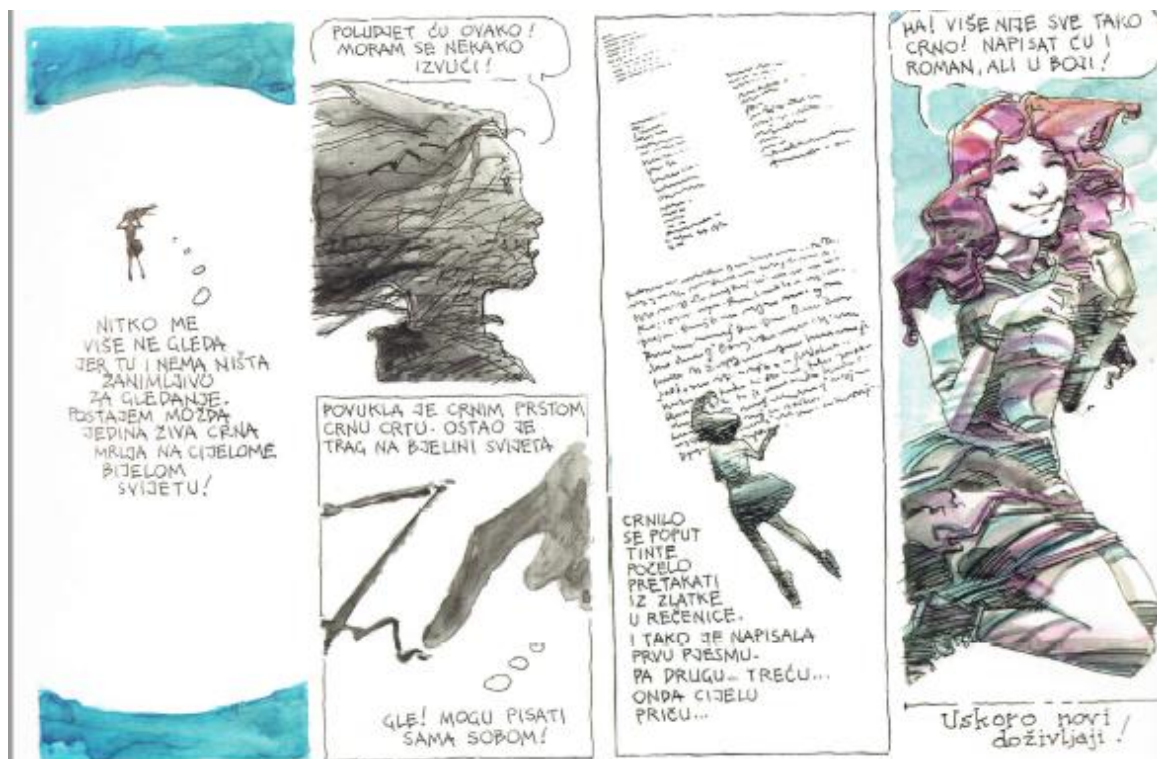 NITKO ME
VIŠE NE GLEDA
JER TU I NEMA NIŠTA
ZANIMLJIVO
ZA GLEDANJE.
POSTAJEM MOŽDA
JEDINA ŽIVA CRNA
MRLJA NA CIJELOME
BIJELOM
SVIJETU!
POLUDJET ĆU OVAKO!
MORAM SE NEKAKO
IZVUĆI!
POVUKLA JE CRNIM PRSTOM
CRNU CRTU. OSTAO JE
TRAG NA BJELINI SVIJETA
GLE! MOGU PISATI
SAMA SOBOM!
CRNILO
SE POPUT
TINTE
POČELO
PRETAKATI
IZ ZLATKE
U REČENICE.
I TAKO JE NAPISALA
PRVU PJESMU.
PA DRUGU... TREĆU...
ONDA CIJELU
PRIČU...
HA! VIŠE NIJE SVE TAKO
CRNO! NAPISAT ĆU I
ROMAN, ALI U BOJI!
Uskoro novi
doživljaji!